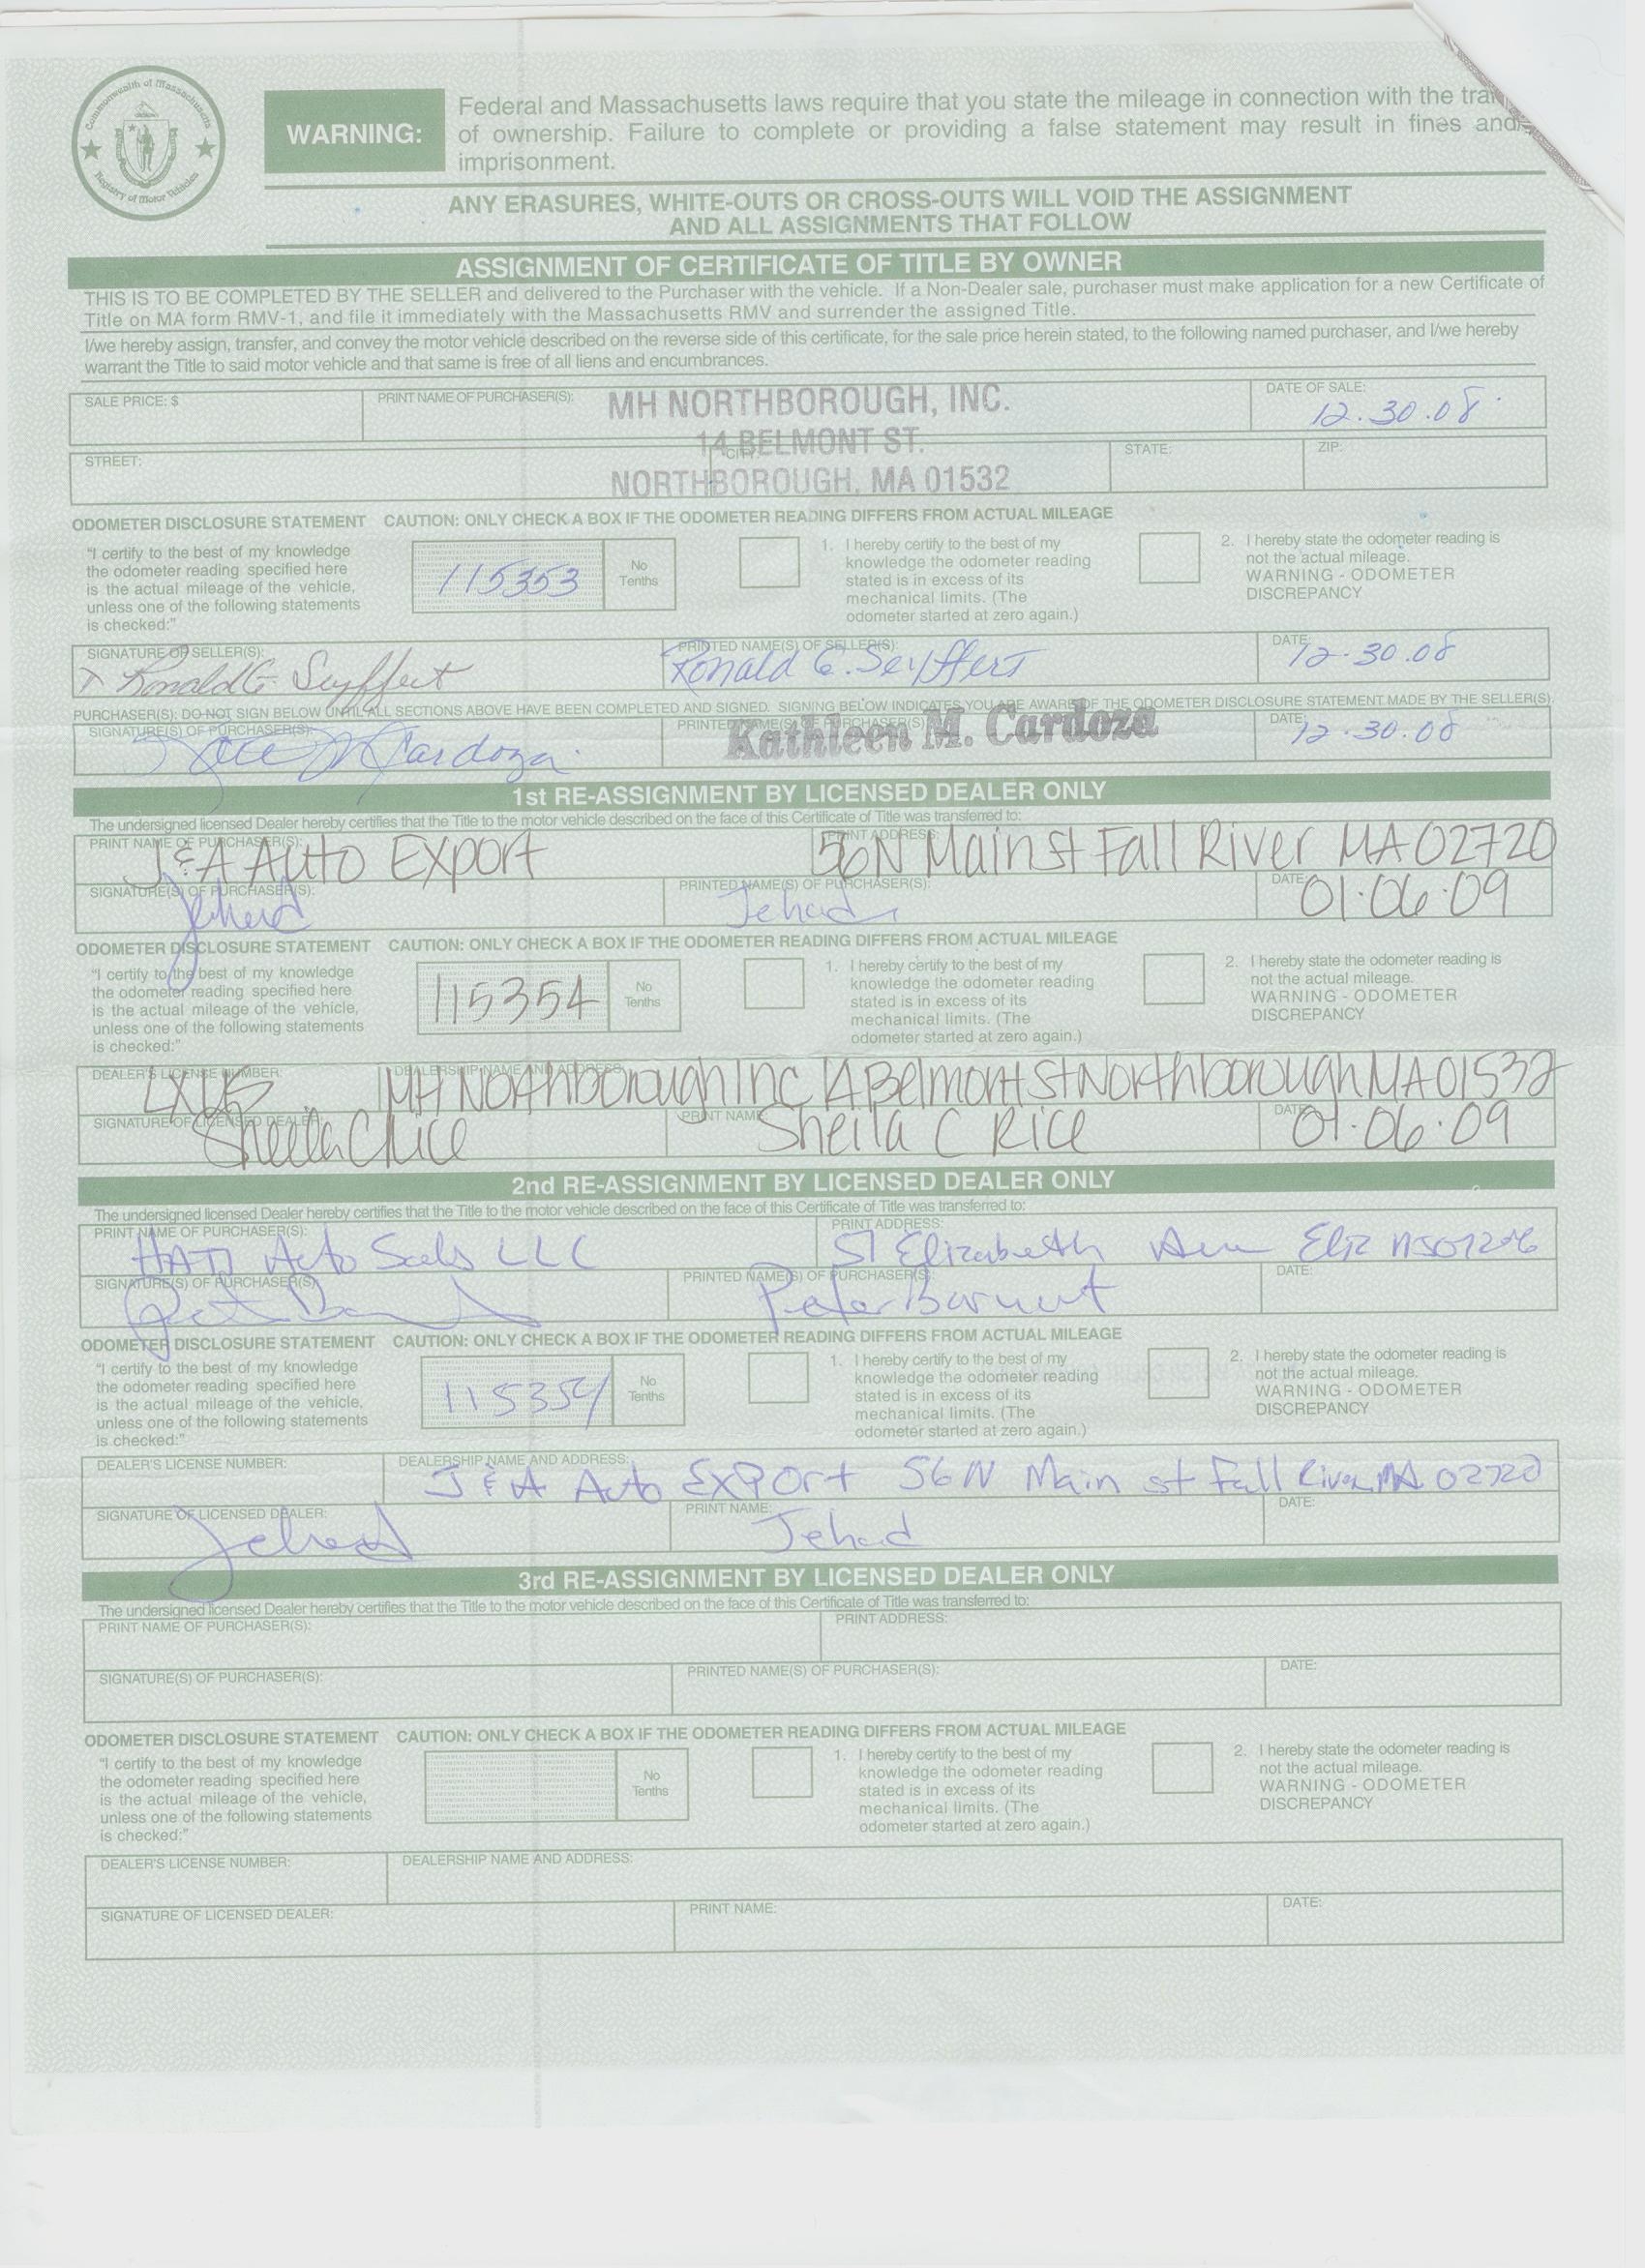 Commonwealth of Massachusetts
Registry of Motor Vehicles
WARNING:
Federal and Massachusetts laws require that you state the mileage in connection with the
of ownership. Failure to complete or providing a false statement may result in fines and
imprisonment.
ANY ERASURES, WHITE-OUTS OR CROSS-OUTS WILL VOID THE ASSIGNMENT
AND ALL ASSIGNMENTS THAT FOLLOW
ASSIGNMENT OF CERTIFICATE OF TITLE BY OWNER
THIS IS TO BE COMPLETED BY THE SELLER and delivered to the Purchaser with the vehicle. If a Non-Dealer sale, purchaser must make application for a new Certificate of
Title on MA form RMV-1, and file it immediately with the Massachusetts RMV and surrender the assigned Title.
I/we hereby assign, transfer, and convey the motor vehicle described on the reverse side of this certificate, for the sale price herein stated, to the following named purchaser, and I/we hereby
warrant the Title to said motor vehicle and that same is free of all liens and encumbrances.
SALE PRICE: $ PRINT NAME OF PURCHASER(S): MH NORTHBOROUGH, INC. DATE OF SALE: 12.30.08
14 BELMONT ST.
STREET: CITY: STATE: ZIP:
NORTHBOROUGH, MA 01532
ODOMETER DISCLOSURE STATEMENT CAUTION: ONLY CHECK A BOX IF THE ODOMETER READING DIFFERS FROM ACTUAL MILEAGE
"I certify to the best of my knowledge
the odometer reading specified here
is the actual mileage of the vehicle,
unless one of the following statements
is checked:"
115353
No
Tenths
1. I hereby certify to the best of my
knowledge the odometer reading
stated is in excess of its
mechanical limits. (The
odometer started at zero again.)
2. I hereby state the odometer reading is
not the actual mileage.
WARNING - ODOMETER
DISCREPANCY
SIGNATURE OF SELLER(S): PRINTED NAME(S) OF SELLER(S): DATE:
X Ronald G. Seyffert Ronald G. Seyffert 12-30.08
PURCHASER(S): DO NOT SIGN BELOW UNTIL ALL SECTIONS ABOVE HAVE BEEN COMPLETED AND SIGNED. SIGNING BELOW INDICATES YOU ARE AWARE OF THE ODOMETER DISCLOSURE STATEMENT MADE BY THE SELLER(S).
SIGNATURE(S) OF PURCHASER(S): PRINTED NAME(S) OF PURCHASER(S): DATE:
M Cardoza Kathleen M. Cardoza 12.30.08
1st RE-ASSIGNMENT BY LICENSED DEALER ONLY
The undersigned licensed Dealer hereby certifies that the Title to the motor vehicle described on the face of this Certificate of Title was transferred to:
PRINT NAME OF PURCHASER(S): PRINT ADDRESS:
J&A Auto Export 56N Main St Fall River MA 02720
SIGNATURE(S) OF PURCHASER(S): PRINTED NAME(S) OF PURCHASER(S): DATE:
Jehad Jehad 01.06.09
ODOMETER DISCLOSURE STATEMENT CAUTION: ONLY CHECK A BOX IF THE ODOMETER READING DIFFERS FROM ACTUAL MILEAGE
"I certify to the best of my knowledge
the odometer reading specified here
is the actual mileage of the vehicle,
unless one of the following statements
is checked:"
115354
No
Tenths
1. I hereby certify to the best of my
knowledge the odometer reading
stated is in excess of its
mechanical limits. (The
odometer started at zero again.)
2. I hereby state the odometer reading is
not the actual mileage.
WARNING - ODOMETER
DISCREPANCY
DEALER'S LICENSE NUMBER: DEALERSHIP NAME AND ADDRESS:
MH Northborough Inc 14 Belmont St Northborough MA 01532
SIGNATURE OF LICENSED DEALER: PRINT NAME: DATE:
Sheila C Rice Sheila C Rice 01.06.09
2nd RE-ASSIGNMENT BY LICENSED DEALER ONLY
The undersigned licensed Dealer hereby certifies that the Title to the motor vehicle described on the face of this Certificate of Title was transferred to:
PRINT NAME OF PURCHASER(S): PRINT ADDRESS:
Auto Seels LLC 51 Elizabeth Ave Eliz NJ 07206
SIGNATURE(S) OF PURCHASER(S): PRINTED NAME(S) OF PURCHASER(S): DATE:
Peter
ODOMETER DISCLOSURE STATEMENT CAUTION: ONLY CHECK A BOX IF THE ODOMETER READING DIFFERS FROM ACTUAL MILEAGE
"I certify to the best of my knowledge
the odometer reading specified here
is the actual mileage of the vehicle,
unless one of the following statements
is checked:"
115354
No
Tenths
1. I hereby certify to the best of my
knowledge the odometer reading
stated is in excess of its
mechanical limits. (The
odometer started at zero again.)
2. I hereby state the odometer reading is
not the actual mileage.
WARNING - ODOMETER
DISCREPANCY
DEALER'S LICENSE NUMBER: DEALERSHIP NAME AND ADDRESS:
J & A Auto Export 56N Main st Fall River, MA 02720
SIGNATURE OF LICENSED DEALER: PRINT NAME: DATE:
Jehad Jehad
3rd RE-ASSIGNMENT BY LICENSED DEALER ONLY
The undersigned licensed Dealer hereby certifies that the Title to the motor vehicle described on the face of this Certificate of Title was transferred to:
PRINT NAME OF PURCHASER(S): PRINT ADDRESS:
SIGNATURE(S) OF PURCHASER(S): PRINTED NAME(S) OF PURCHASER(S): DATE:
ODOMETER DISCLOSURE STATEMENT CAUTION: ONLY CHECK A BOX IF THE ODOMETER READING DIFFERS FROM ACTUAL MILEAGE
"I certify to the best of my knowledge
the odometer reading specified here
is the actual mileage of the vehicle,
unless one of the following statements
is checked:"
No
Tenths
1. I hereby certify to the best of my
knowledge the odometer reading
stated is in excess of its
mechanical limits. (The
odometer started at zero again.)
2. I hereby state the odometer reading is
not the actual mileage.
WARNING - ODOMETER
DISCREPANCY
DEALER'S LICENSE NUMBER: DEALERSHIP NAME AND ADDRESS:
SIGNATURE OF LICENSED DEALER: PRINT NAME: DATE: